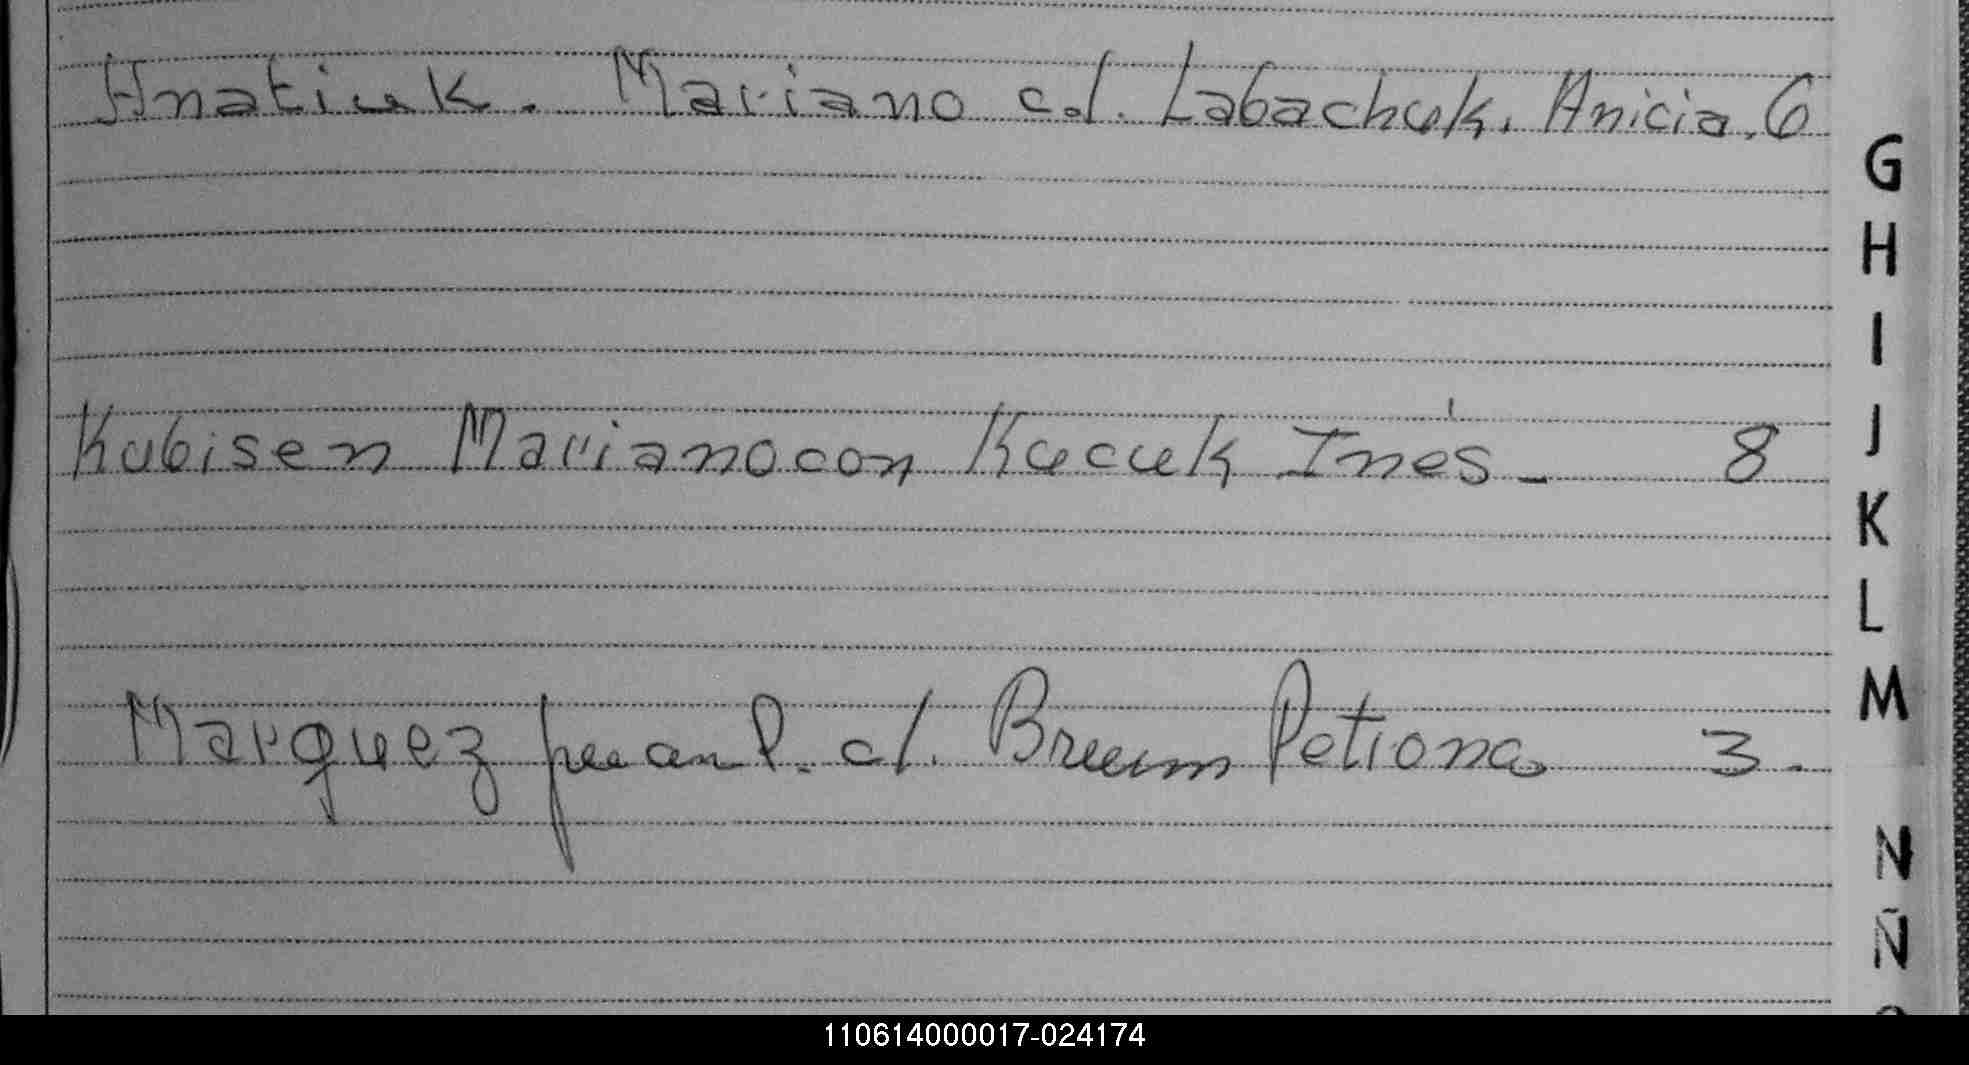 Hnatiuk. Mariano c/. Labachuk. Anicia. 6
G
H
I
Kubisen Mariano con Kucuk Inés - 8
J
K
L
M
Marquez Juan P. c/. Breem Petrona 3.
N
Ñ
110614000017-024174